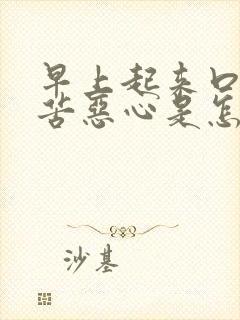 早上起来口
苦惡心是怎
沙基